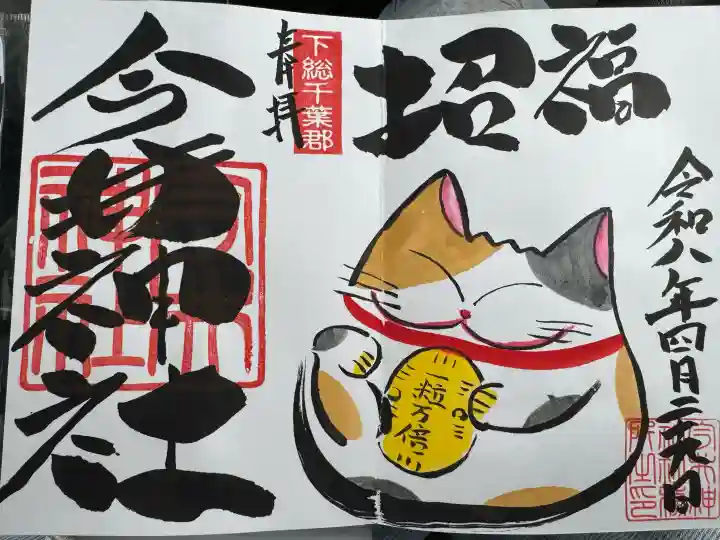 招福
令和八年四月二十九日
一粒万倍
下総千葉郡
奉拝
神社